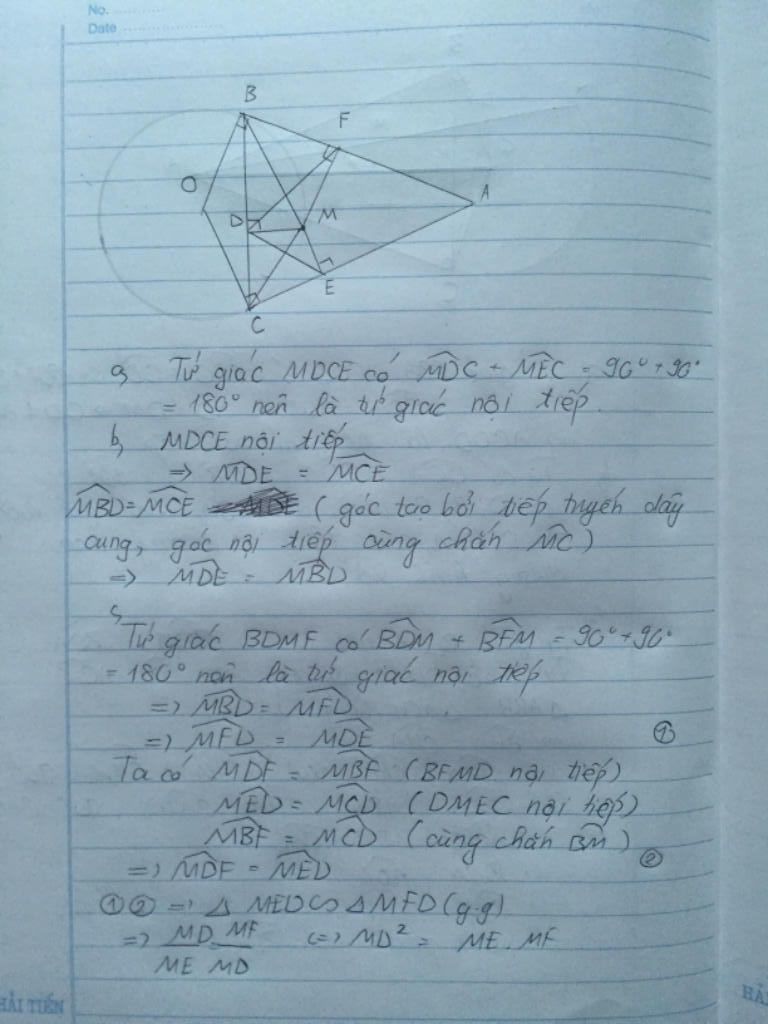 No.
Date
B
F
O
A
D
M
E
C
a, Tứ giác MDCE có \widehat{MDC} + \widehat{MEC} = 90° + 90°
= 180° nên là tứ giác nội tiếp.
b, MDCE nội tiếp
=> \widehat{MDE} = \widehat{MCE}
\widehat{MBD} = \widehat{MCE} (góc tạo bởi tiếp tuyến dây
cung, góc nội tiếp cùng chắn \widehat{MC})
=> \widehat{MDE} = \widehat{MBD}
c,
Tứ giác BDMF có \widehat{BDM} + \widehat{BFM} = 90° + 90°
= 180° nên là tứ giác nội tiếp
=> \widehat{MBD} = \widehat{MFD}
=> \widehat{MFD} = \widehat{MDE} ①
Ta có \widehat{MDF} = \widehat{MBF} (BFMD nội tiếp)
\widehat{MED} = \widehat{MCD} (DMEC nội tiếp)
\widehat{MBF} = \widehat{MCD} (cùng chắn \widehat{BM})
=> \widehat{MDF} = \widehat{MED} ②
①② => Δ MED ∽ Δ MFD (g.g)
=> MD MF <=> MD² = ME . MF
ME MD
HẢI TIẾN
HẢ